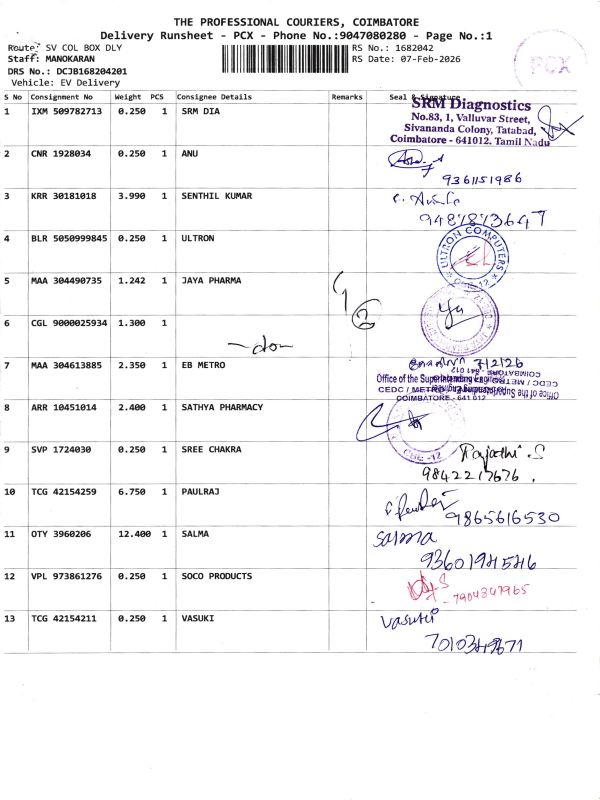 THE PROFESSIONAL COURIERS, COIMBATORE
Delivery Runsheet - PCX - Phone No.:9047080280 - Page No.:1
Route: SV COL BOX DLY RS No.: 1682042
Staff: MANOKARAN RS Date: 07-Feb-2026
DRS No.: DCJB168204201
Vehicle: EV Delivery
PCX
S No Consignment No Weight PCS Consignee Details Remarks Seal & Signature
1 IXM 509782713 0.250 1 SRM DIA
SRM Diagnostics
No.83, 1, Valluvar Street,
Sivananda Colony, Tatabad,
Coimbatore - 641012. Tamil Nadu
2 CNR 1928034 0.250 1 ANU
9361151986
3 KRR 30181018 3.990 1 SENTHIL KUMAR
9487873647
4 BLR 5050999845 0.250 1 ULTRON
ULTRON COMPUTERS
CBE-12
5 MAA 304490735 1.242 1 JAYA PHARMA
2
6 CGL 9000025934 1.300 1
7 MAA 304613885 2.350 1 EB METRO
7/2/26
Office of the Superintending Engineer
CEDC / METRO
COIMBATORE - 641 012
8 ARR 10451014 2.400 1 SATHYA PHARMACY
CBE-12
9 SVP 1724030 0.250 1 SREE CHAKRA
Rajathi.S
9842217676.
10 TCG 42154259 6.750 1 PAULRAJ
9865616530
11 OTY 3960206 12.400 1 SALMA
Salma
9360194546
12 VPL 973861276 0.250 1 SOCO PRODUCTS
- 7904347965
13 TCG 42154211 0.250 1 VASUKI
Vasuki